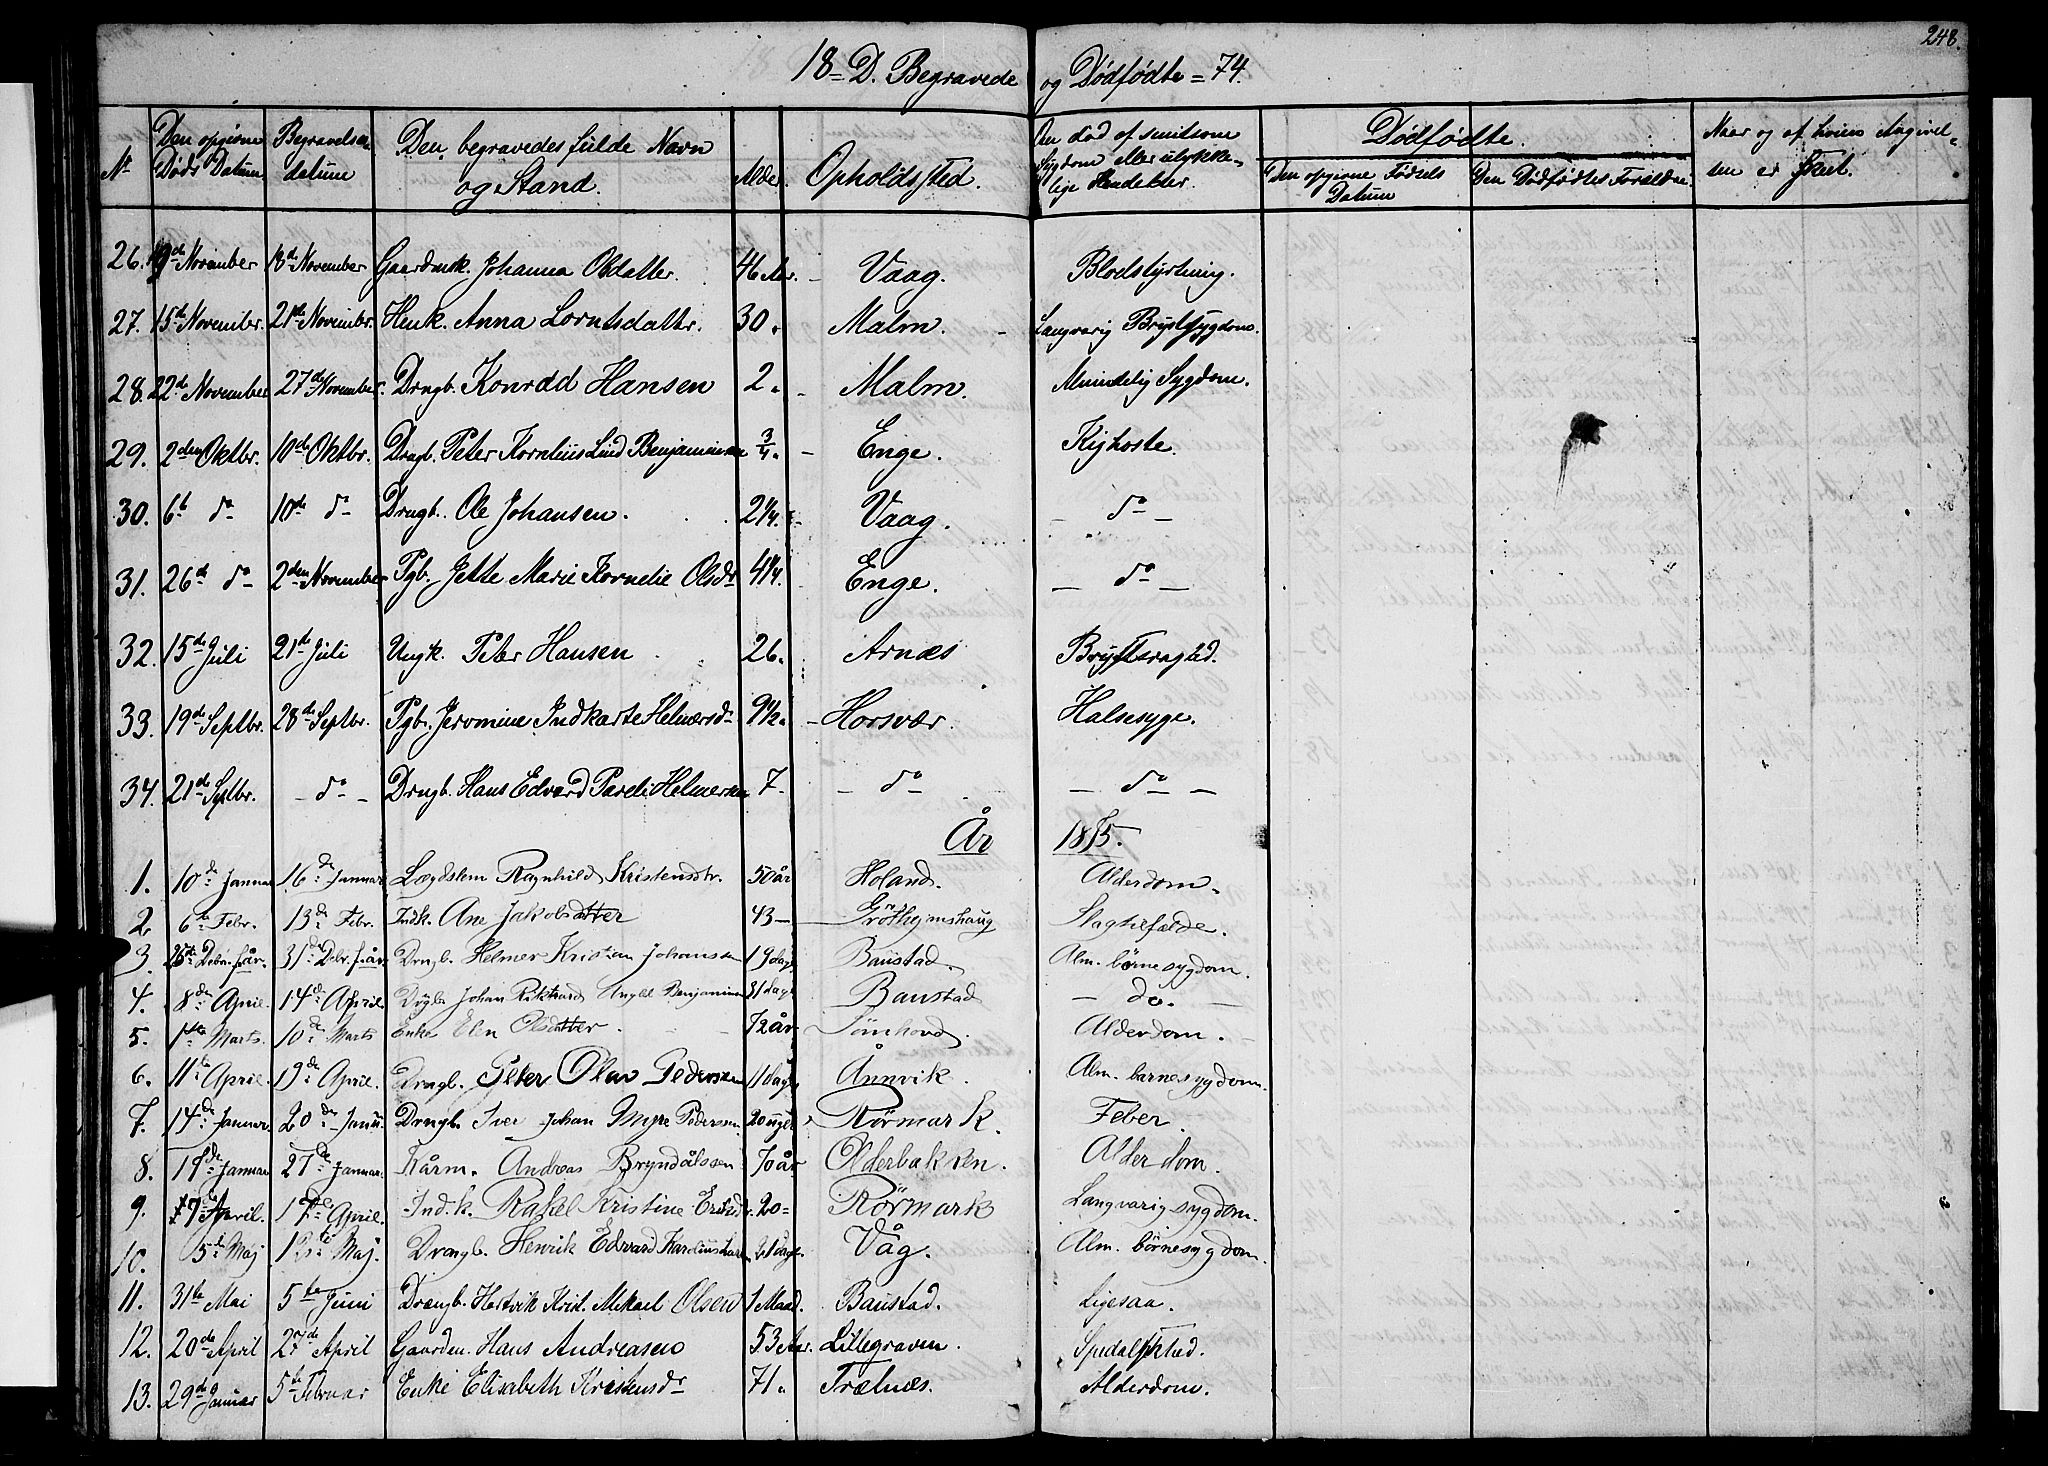 248.
18- D. Begravede og Dødfødte - 74.
Nr Den opgivne Døds Datum. Begravelses datum Den begravedes fulde Navn og Stand. Alder. Opholdssted. Om død af smitsom Sygdom eller ulykkelige Hændelser. Dødfødte. Den opgivne Fødsels Datum Den Dødfødtes Forældre. Naar og af hvem Angivelsen er skeet.
26. 9de November 18de November Gaardmk. Johanna Olsdatter. 46 Aar. - Vaag. Blodstyrtning.
27. 15de November. 21de Novembr. Henk. Anna Lorntsdattr. 30. Malm. - Langvarig Brystsygdom.
28. 22de November 27de November. Drngb. Konrad Hansen 2. - Malm. Almindelig Sygdom.
29. 2den Oktbr. 10de Oktbr. Drngb. Peter Kornelius Lind Benjaminsen 3/4. - Enge. Kighoste.
30. 6te do 10de do Drngb. Ole Johansen. 2 1/4. - Vaag. - do -
31. 26de do 2den November Pgb. Jette Marie Kornelie Olsdr 4 1/4. Enge. - do -
32. 15de Juli 21de Juli Ungk. Peter Hansen 26. Arnæs Brystsvaghed.
33. 19de Septbr. 28de Septbr. Pgb. Jeromine Indkarte Helmersdr 9 1/2. - Horsvær. Halsesyge.
34. 21de Septbr. - do - Drngb. Hans Edvard Pareli Helmersen 7. - do - - do -
År 1875.
1. 10de Januar 16de Januar Lægdslem Ragnhild Kristensdtr. 50 år Holand. Alderdom.
2. 6te Febr. 13de Febr. Indk. Ane Jakobsdatter 43 - Grøtheimshaug Slagtilfælde.
3. 26de Debr. f. år. 31de Debr. f. år. Drngb. Helmer Kristian Johanssen 19 dage Baustad. Alm. børnesygdom.
4. 8de April. 14de April. Drgb. Johan Rikhard Angel Benjaminsen 31 dage Baustad - do. -
5. 1ste Marts. 10de Marts Enke Elen Olsdatter. 72 år - Sømhovd. Alderdom. -
6. 11te April. 19de April. Drngb. Peter Olav Pedersen 11 dage Ånnvik. Alm. barnesygdom.
7. 14de Januar. 20de Janu. Drngb. Iver Johan Myre Pedersen. 20 uger Rörmark. Feber.
8. 19de Januar 27de Januar. Kårm. Andreas Bryndålssen 70 år. Olderbakken. Alderdom.
9. 7de April. 17de April. Indk. Rakel Kristine Eriksd. 20 = Rörmark Langvarig sygdom.
10. 5de Maj 13de Maj. Drengb. Henrik Edvard Karelius 21 dage. Våg. Alm. børnesygdom.
11. 31te Mai 5te Juni Drængb. Hartvik Krist. Mikael Olsen 1 Maad. Baustad. Ligesaa.
12. 20de April 27de April Gaardm. Hans Andreasen 53 Aar. Lillegraven. Spedalskhed.
13. 29de Januar 5te Februar Enke Elisabeth Kristensdr 71. Trælnæs. Alderdom.